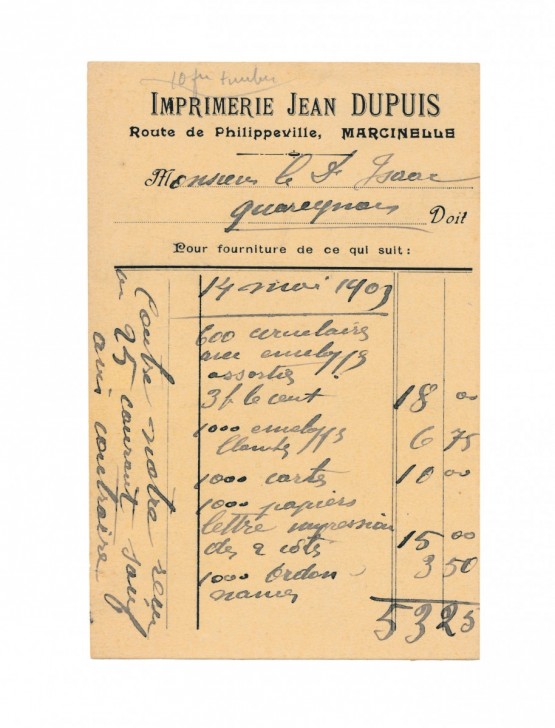 10 fr timbres
IMPRIMERIE JEAN DUPUIS
Route de Philippeville, MARCINELLE
Monsieur le Dr Isaac
Quaregnon Doit
Pour fourniture de ce qui suit:
14 mai 1903
600 circulaires
avec envelopps
assorties
3f. le cent 18 00
1000 envelopps
6 75
1000 cartes 10 00
1000 papiers
lettre impression
des 2 côtés 15 00
1000 ordon 3 50
nances
53 25
Contre notre reçu
au 25 courant sauf
avis contraire